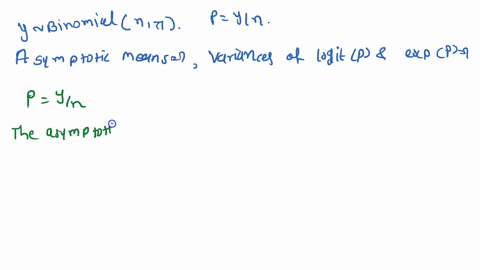 y ~ Binomial (n, π).   P = y/n
Asymptotic means =), variances of logit (P) & exp (P) =)
P = y/n
The asymptoti